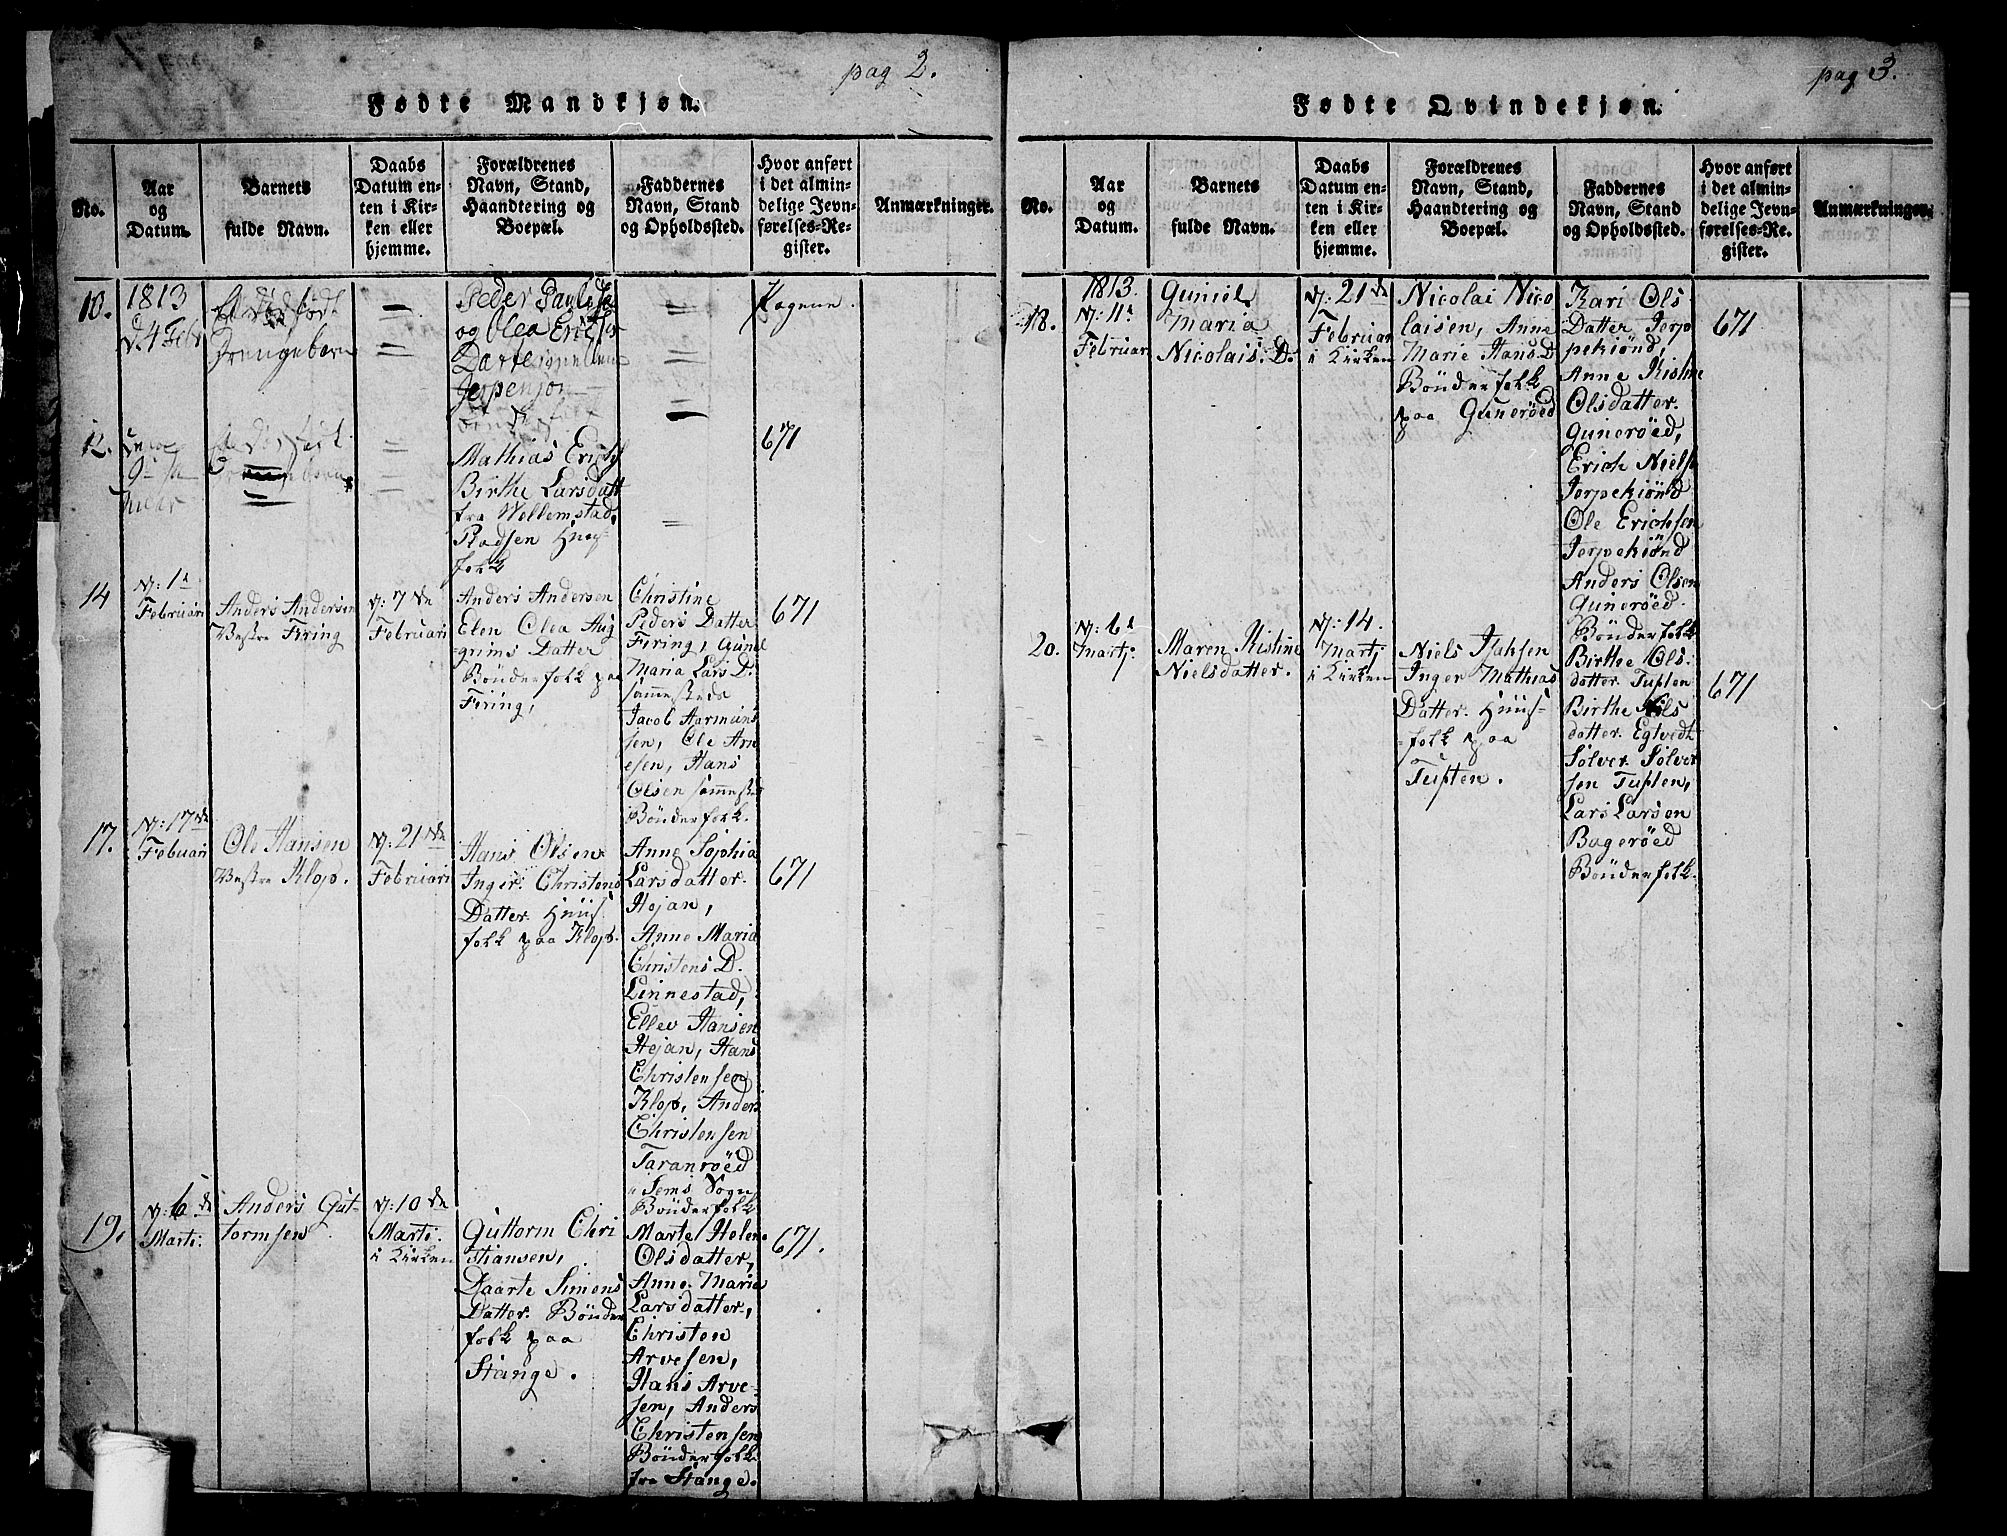 pag 2.
Fødte Mandkjøn.
No.
Aar
og
Datum.
Barnets
fulde Navn.
Daabs
Datum en-
ten i Kir-
ken eller
hjemme.
Forældrenes
Navn, Stand,
Haandtering og
Boepæl.
Faddernes
Navn, Stand
og Opholdssted.
Hvor anført
i det almin-
delige Jevn-
førelses-Re-
gister.
Anmærkninger.
10.
1813
d. 4 Febr
Et Dødfødt
Drengebarn
Peder
og Olea
12.
Mathias
Birthe Larsdatt
fra
folk
671
14
1
Februari
Anders Andersen
Vestre Firing
7 de
Februari
Anders Andersen
Elen Olea Aug
grims Datter
Bønderfolk paa
Firing,
Christine
Peders Datter
Firing, Gunil
Maria Lars D.
sammesteds
Jacob Hermans
sen, Ole Arn
esen, Hans
Olsen sammest
Bønderfolk.
671
17.
17 de
Februari
Ole Hansen
Vestre Klop.
21 de
Februari
Hans Olsen
Inger Christens
Datter Huus
folk paa Klop.
Anne Sophia
Larsdatter
Hojan,
Anne Maria
Christens D.
Linnestad,
Ellev Hansen
Hejan, Hans
Christensen
Klop, Anders
Christensen
Taranrøed
i Sems Sogn
Bønderfolk
671
19.
6 de
Marti.
Anders Gut-
tormsen
10 de
Marti.
i Kirken
Guttorm Chri
stiansen,
Daarte Simons
Datter. Bønder
folk paa
Stange.
Marte Helene
Olsdatter,
Anne Maria
Larsdatter,
Christen
Arvesen,
Hans Arve-
sen, Anders
Christensen
Bønderfolk
fra Stange.
671.
pag 3.
Fødte Qvindekjøn.
No.
Aar
og
Datum.
Barnets
fulde Navn.
Daabs
Datum en-
ten i Kir-
ken eller
hjemme.
Forældrenes
Navn, Stand,
Haandtering og
Boepæl.
Faddernes
Navn, Stand
og Opholdssted.
Hvor anført
i det almin-
delige Jevn-
førelses-Re-
gister.
Anmærkninger.
18.
1813.
11
Februar
Gunild
Maria
Nicolais. D.
21 de
Februar
i Kirken
Nicolai Nico
laisen, Anne
Marie Hans D
Bønderfolk
paa Gunerøed
Kari Ols
Datter Jerp
pekiønd,
Anne Kistine
Olsdatter
Gunerøed,
Erich Niels
Jerpekiønd
Ole Erichsen
Jerpekiønd
Anders Olsen
Gunerøed.
Bønderfolk
671
20.
6
Martj.
Maren Kistine
Nielsdatter.
14.
Martj
i Kirken
Niels Isaksen
Inger Mathias
Datter. Huus-
folk paa
Tuften.
Birthe Ols
datter Tuften
Birthe Nils
datter Egtvedt
Sølver Sølver
sen Tuften,
Lars Larsen
Bagerøed
Bønderfolk.
671